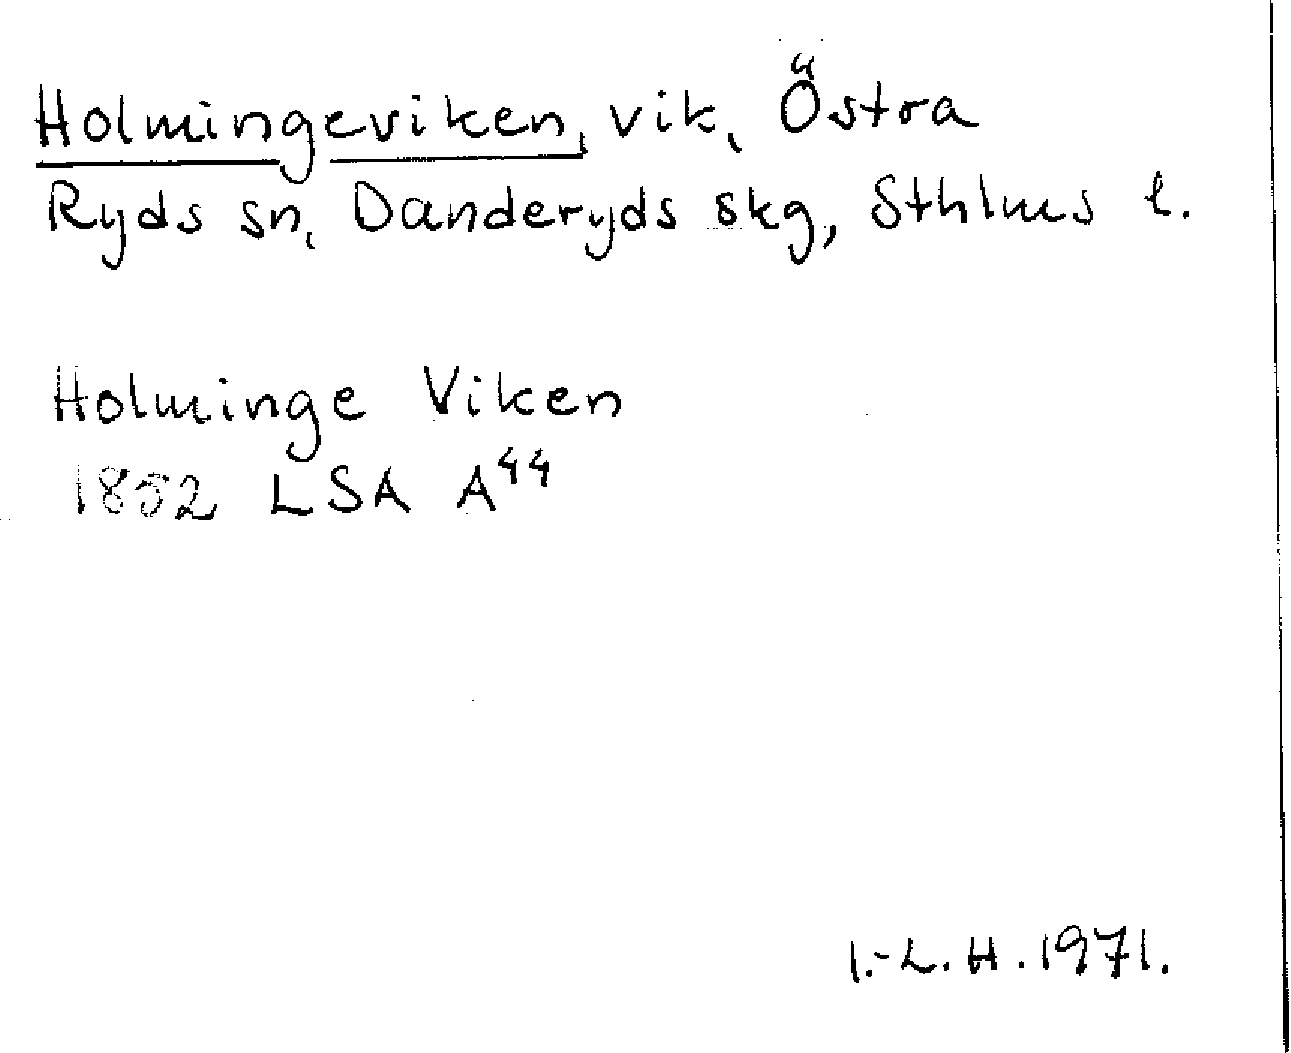 Holmingeviken, vik, Östra
Ryds sn, Danderyds skg, Sthlms l.
Holminge Viken
1852 LSA A⁴⁴
I.-L. H. 1971.